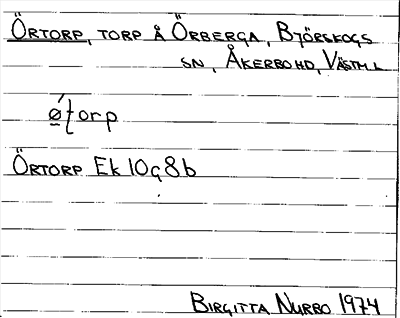 ÖRTORP, TORP Å ÖRBERGA, BJÖRSKOGS
SN, ÅKERBO HD, VÄSTM. L
ö́ʈorp
ÖRTORP Ek 10g8b
BIRGITTA NURBO 1974